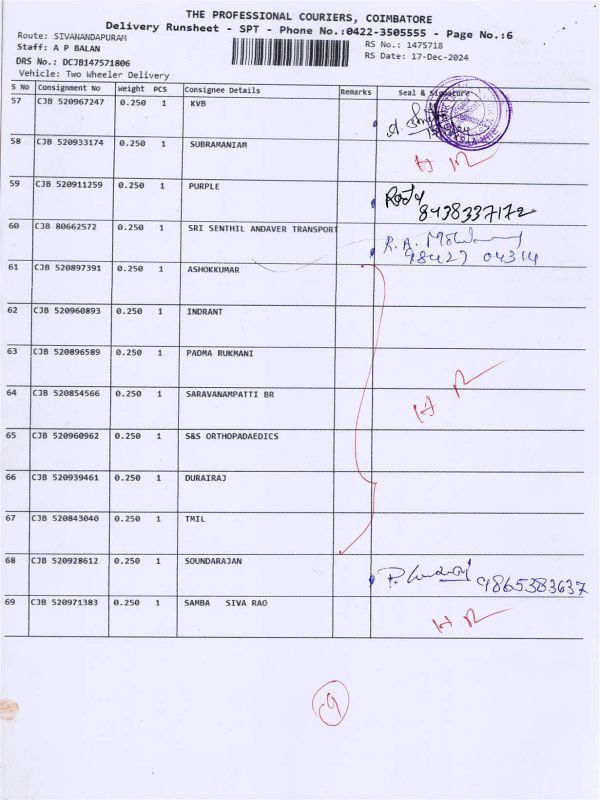 THE PROFESSIONAL COURIERS, COIMBATORE
Delivery Runsheet - SPT - Phone No.:0422-3505555 - Page No.:6
Route: SIVANANDAPURAM
RS No.: 1475718
Staff: A P BALAN
RS Date: 17-Dec-2024
DRS No.: DCJB147571806
Vehicle: Two Wheeler Delivery
S No Consignment No Weight PCS Consignee Details Remarks Seal & Signature
57 CJB 520967247 0.250 1 KVB
58 CJB 520933174 0.250 1 SUBRAMANIAM H R
59 CJB 520911259 0.250 1 PURPLE 8438337172
60 CJB 80662572 0.250 1 SRI SENTHIL ANDAVER TRANSPORT R.A. 98427 04314
61 CJB 520897391 0.250 1 ASHOKKUMAR
62 CJB 520960893 0.250 1 INDRANT
63 CJB 520896589 0.250 1 PADMA RUKMANI
64 CJB 520854566 0.250 1 SARAVANAMPATTI BR H R
65 CJB 520960962 0.250 1 S&S ORTHOPADAEDICS
66 CJB 520939461 0.250 1 DURAIRAJ
67 CJB 520843040 0.250 1 TMIL
68 CJB 520928612 0.250 1 SOUNDARAJAN P. 9865383637
69 CJB 520971383 0.250 1 SAMBA SIVA RAO H R
9